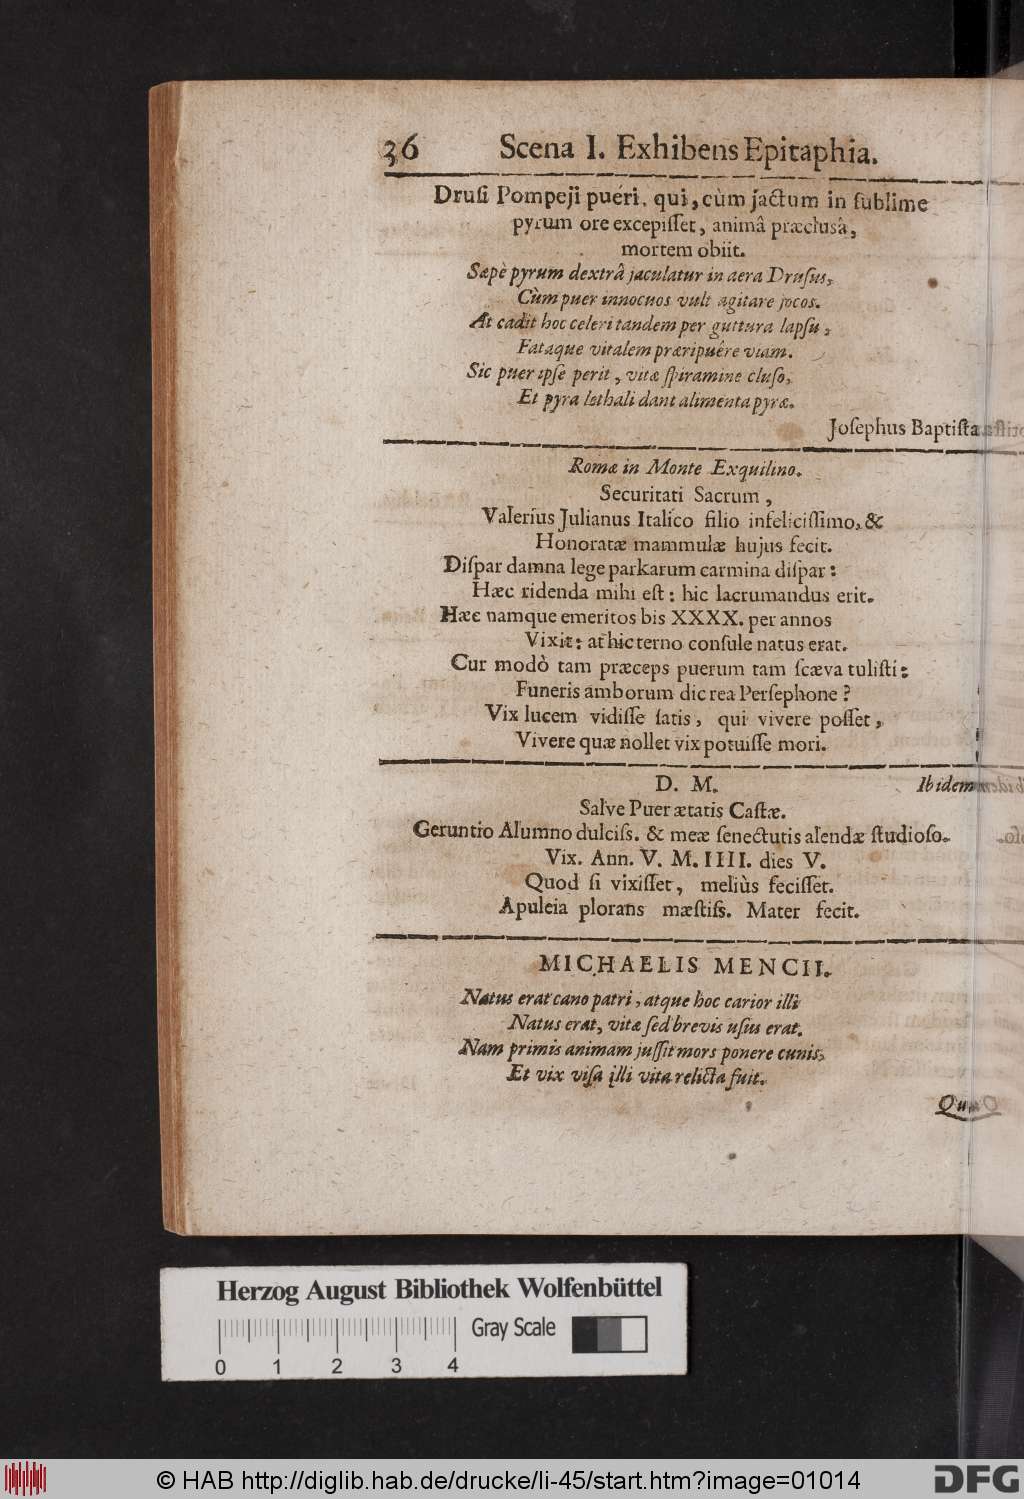 36 Scena I. Exhibens Epitaphia.
Druſi Pompeji puéri, qui, cùm jactum in ſublime
pyrum ore excepiſſet, animâ præcluſâ,
mortem obiit.
Sæpè pyrum dextrâ jaculatur in aera Druſus,
Cùm puer innocuos vult agitare jocos.
At cadit hoc celeri tandem per guttura lapſu,
Fataque vitalem præripuêre viam.
Sic puer ipſe perit, vitæ ſpiramine cluſo,
Et pyra lethali dant alimenta pyræ.
Joſephus Baptiſta
Romæ in Monte Exquilino.
Securitati Sacrum,
Valerius Julianus Italico filio infeliciſſimo, &
Honoratæ mammulæ hujus fecit.
Diſpar damna lege parkarum carmina diſpar:
Hæc ridenda mihi eſt: hic lacrumandus erit.
Hæc namque emeritos bis XXXX. per annos
Vixit: at hic terno conſule natus erat.
Cur modò tam præceps puerum tam ſcæva tuliſti:
Funeris amborum dic rea Perſephone?
Vix lucem vidiſſe ſatis, qui vivere poſſet,
Vivere quæ nollet vix potuiſſe mori.
D. M. Ibidem
Salve Puer ætatis Caſtæ.
Geruntio Alumno dulciſs. & meæ ſenectutis alendæ ſtudioſo.
Vix. Ann. V. M. IIII. dies V.
Quod ſi vixiſſet, meliùs feciſſet.
Apuleia plorans mæſtiſs. Mater fecit.
MICHAELIS MENCII.
Natus erat cano patri, atque hoc carior illi
Natus erat, vitæ ſed brevis uſus erat.
Nam primis animam juſſit mors ponere cunis,
Et vix viſa illi vita relicta fuit.
Herzog August Bibliothek Wolfenbüttel
Gray Scale
0 1 2 3 4
© HAB http://diglib.hab.de/drucke/li-45/start.htm?image=01014
DFG